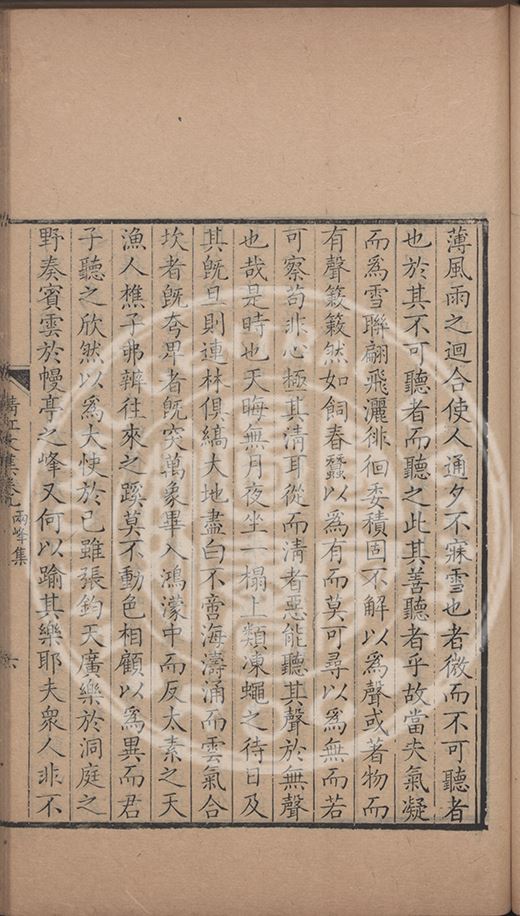 薄風雨之迴合使人通夕不寐雪也者微而不可聽者
也於其不可聽者而聽之此其善聽者乎故當夫氣凝
而爲雪聯翩飛灑徘徊委積固不解以爲聲或者物而
有聲簌簌然如飼春蠶以爲有而莫可尋以爲無而若
可察苟非心極其清耳從而清者惡能聽其聲於無聲
也哉是時也天晦無月夜坐一榻上類凍蠅之待日及
其旣旦則連林俱縞大地盡白不啻海濤涌而雲氣合
坎者旣夸畀者旣突萬象畢入鴻濛中而反太素之天
漁人樵子弗辨往來之蹊莫不動色相顧以爲異而君
子聽之欣然以爲大快於己雖張鈞天廣樂於洞庭之
野奏賓雲於幔亭之峰又何以踰其樂耶夫衆人非不
清江文集卷 兩峰集
六